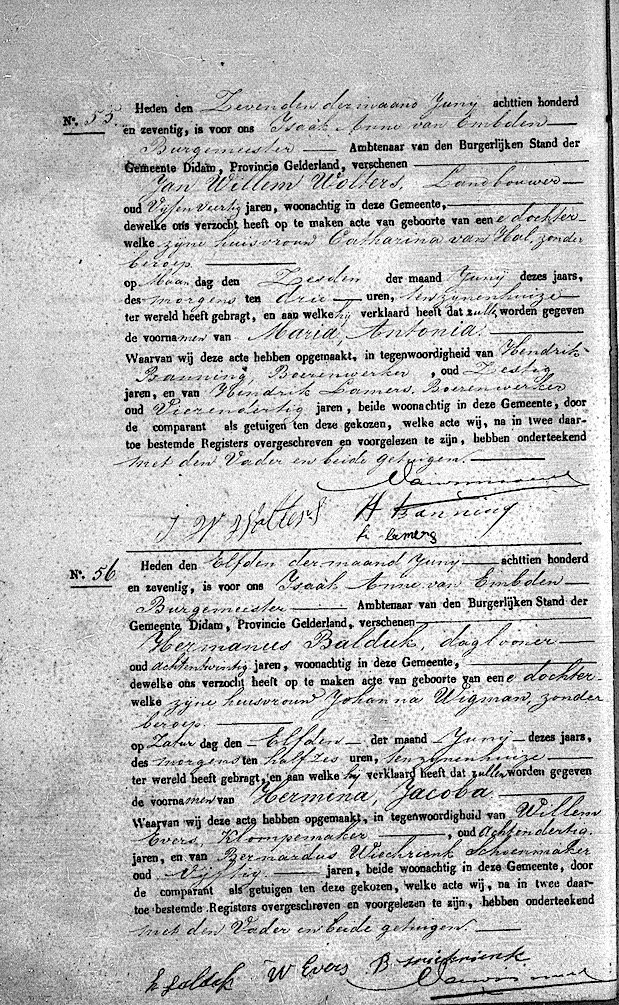 Nº. 55. Heden den Zevenden der maand Junij achttien honderd
en zeventig, is voor ons Isaak Anne van Embden
Burgemeester Ambtenaar van den Burgerlijken Stand der
Gemeente Didam, Provincie Gelderland, verschenen
Jan Willem Wolters, Landbouwer
oud Vijfenveertig jaren, woonachtig in deze Gemeente,
dewelke ons verzocht heeft op te maken acte van geboorte van een e dochter
welke zyne huisvrouw Catharina van Hal, zonder
beroep
op Maan dag den Zesden der maand Junij dezes jaars,
des morgens ten drie uren, ten zynenhuize
ter wereld heeft gebragt, en aan welke hij verklaard heeft dat zulle worden gegeven
de voornamen van Maria, Antonia.
Waarvan wij deze acte hebben opgemaakt, in tegenwoordigheid van Hendrik
Banning, Boerenwerker, oud Zestig
jaren, en van Hendrik Lamers, Boerenwerker
oud Vierendertig jaren, beide woonachtig in deze Gemeente, door
de comparant als getuigen ten deze gekozen, welke acte wij, na in twee daar-
toe bestemde Registers overgeschreven en voorgelezen te zijn, hebben onderteekend
met den Vader en beide getuigen.
J W Wolters H Banning
h lamers
Nº. 56 Heden den Elfden der maand Junij achttien honderd
en zeventig, is voor ons Isaak Anne van Embden
Burgemeester Ambtenaar van den Burgerlijken Stand der
Gemeente Didam, Provincie Gelderland, verschenen
Hermanus Balduk, daglooner
oud achtentwintig jaren, woonachtig in deze Gemeente,
dewelke ons verzocht heeft op te maken acte van geboorte van een e dochter
welke zyne huisvrouw Johanna Wigman, zonder
beroep.
op Zatur dag den Elfden der maand Junij dezes jaars,
des morgens ten half zes uren, ten zynenhuize
ter wereld heeft gebragt, en aan welke hij verklaard heeft dat zullen worden gegeven
de voornamen van Hermina, Jacoba
Waarvan wij deze acte hebben opgemaakt, in tegenwoordigheid van Willem
Evers, Klompemaker, oud Achtendertig
jaren, en van Bernardus Wischrienk Schoenmaker
oud Vijftig jaren, beide woonachtig in deze Gemeente, door
de comparant als getuigen ten deze gekozen, welke acte wij, na in twee daar-
toe bestemde Registers overgeschreven en voorgelezen te zijn, hebben onderteekend
met den Vader en beide getuigen.
W Evers B